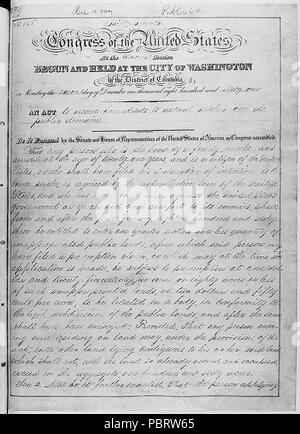 Public 64
Congress of the United States
At the Second Session
BEGUN AND HELD AT THE CITY OF WASHINGTON
in the District of Columbia
on Monday the second day of December one thousand eight hundred and sixty-one
AN ACT to secure homesteads to actual settlers on the
public domain.
Be it Enacted by the Senate and House of Representatives of the United States of America, in Congress assembled,
That any person who is the head of a family, or who has
arrived at the age of twenty-one years, and is a citizen of the United
States, or who shall have filed his declaration of intention to be-
come such, as required by the naturalization laws of the United
States, and who has
from and after the first day of January, eighteen hundred and sixty
three, be entitled to enter one quarter section or a less quantity of
unappropriated public lands, upon which said person may
have filed a preemption claim, or which may, at the time the
application is made, be subject to preemption at one dol-
lar and twenty five cents, or less, per acre; or eighty acres or less
of such unappropriated lands, at two dollars and fifty
cents per acre, to be located in a body, in conformity to
the legal subdivisions of the public lands, and after the same
shall have been surveyed: Provided, That any person own-
ing and residing on land may, under the provisions of this
act, enter other land lying contiguous to his or her said land,
which shall not, with the land so already owned and occupied,
exceed in the aggregate one hundred and sixty acres.
Sec. 2. And be it further enacted, That the person applying
alamy
Image ID: PBRW65
www.alamy.com